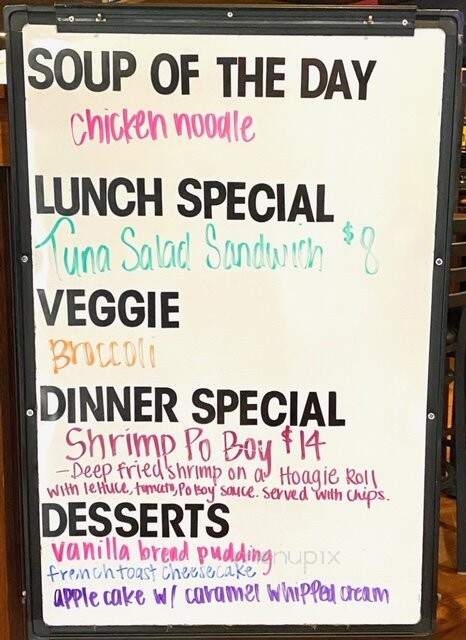 SOUP OF THE DAY
Chicken noodle
LUNCH SPECIAL
Tuna Salad Sandwich $8
VEGGIE
Broccoli
DINNER SPECIAL
Shrimp Po Boy $14
-Deep fried shrimp on a Hoagie Roll
with lettuce, tomato, Po boy sauce. Served with chips.
DESSERTS
vanilla bread pudding
french toast cheesecake
apple cake w/ caramel whipped cream